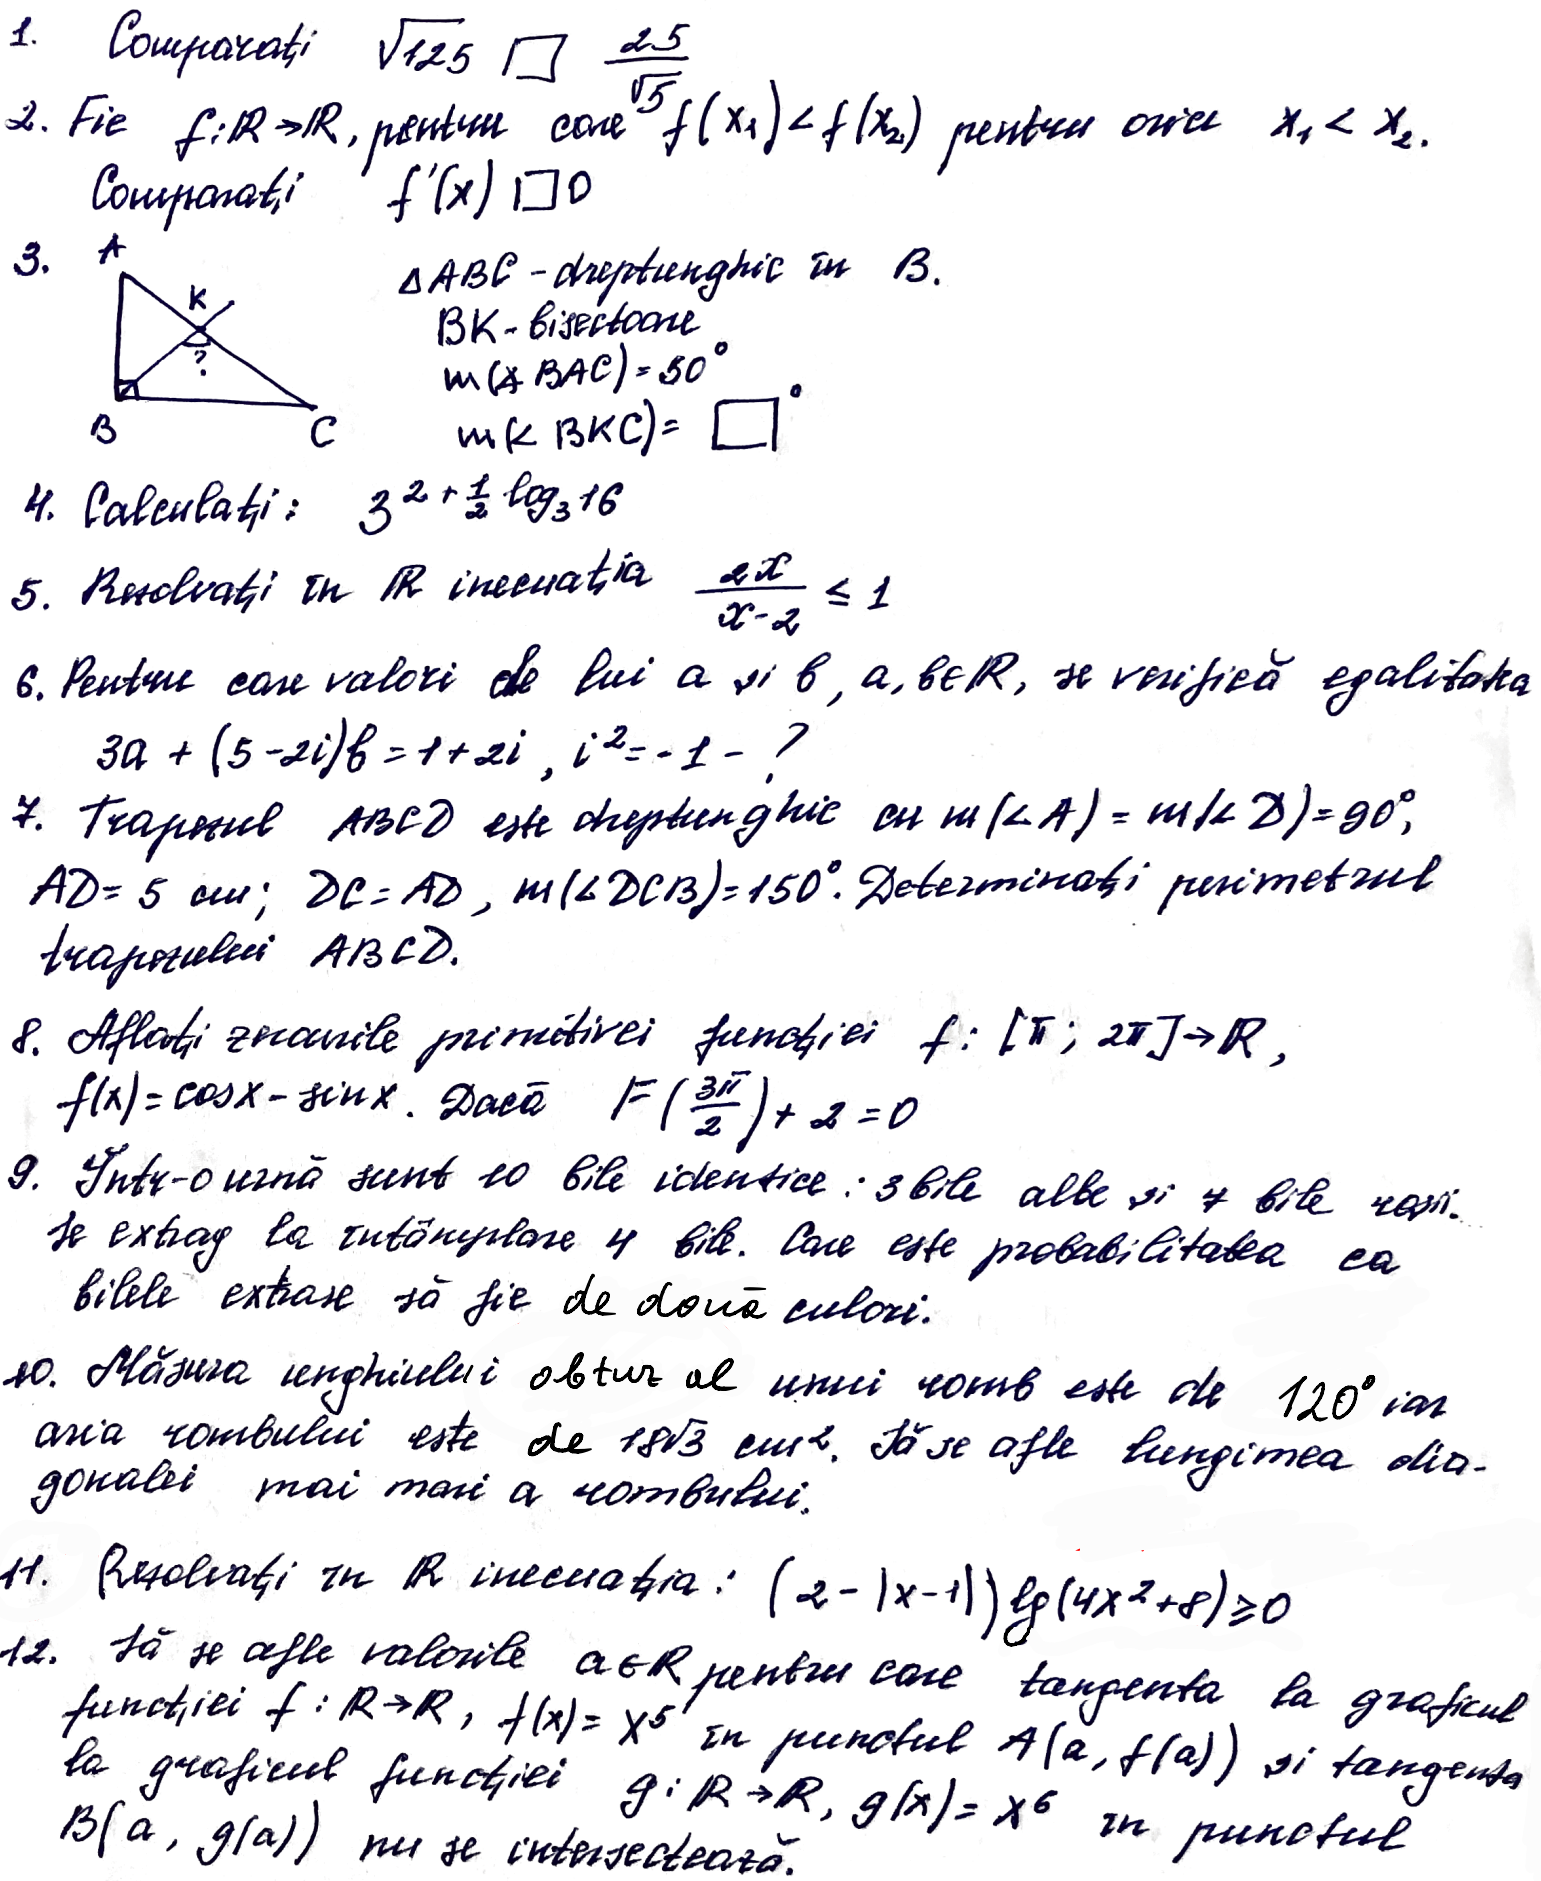 1. Comparați √125 □ 25/√5
2. Fie f: ℝ→ℝ, pentru care f(x₁) < f(x₂) pentru orice x₁ < x₂.
Comparați f'(x) □ 0
3. A K ? B C
△ABC - dreptunghic în B.
BK - bisectoare
m(∡ BAC) = 50°
m(∠ BKC) = □°
4. Calculați: 3^(2 + 1/2 log₃16)
5. Rezolvați în ℝ inecuația 2x/(x-2) ≤ 1
6. Pentru care valori de lui a și b, a, b∈ℝ, se verifică egalitatea
3a + (5-2i)b = 1+2i, i² = -1 - ?
7. Trapezul ABCD este dreptunghic cu m(∠A) = m(∠D) = 90°,
AD = 5 cm; DC = AD, m(∠DCB) = 150°. Determinați perimetrul
trapezului ABCD.
8. Aflați zerourile primitivei funcției f: [π; 2π]→ℝ,
f(x) = cosx - sinx. Dacă F(3π/2) + 2 = 0
9. Într-o urnă sunt 10 bile identice: 3 bile albe și 7 bile roșii.
Se extrag la întâmplare 4 bile. Care este probabilitatea ca
bilele extrase să fie de două culori.
10. Măsura unghiului obtuz al unui romb este de 120° iar
aria rombului este de 18√3 cm². Să se afle lungimea dia-
gonalei mai mari a rombului.
11. Rezolvați în ℝ inecuația: (2 - |x-1|) lg(4x²+8) ≥ 0
12. Să se afle valorile a∈ℝ pentru care tangenta la graficul
funcției f: ℝ→ℝ, f(x) = x⁵ în punctul A(a, f(a)) și tangenta
la graficul funcției g: ℝ→ℝ, g(x) = x⁶ în punctul
B(a, g(a)) nu se intersectează.